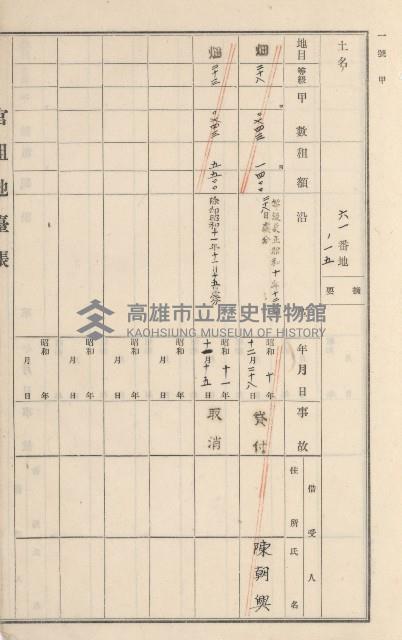 一號甲
土名
六一番地
ノ一五
摘要
地目
等級
甲數
租額
沿
年月日
事故
借受人
住所氏名
畑
二十八
等級更正昭和十年十二月
昭和十年
十二月二十八日
貸付
陳朝興
畑
二十三
五五〇〇
除却昭和十一年十一月十五日
昭和十一年
十一月十五日
取消
昭和 年
月 日
昭和 年
月 日
昭和 年
月 日
昭和 年
月 日
官租地臺帳
高雄市立歷史博物館
KAOHSIUNG MUSEUM OF HISTORY